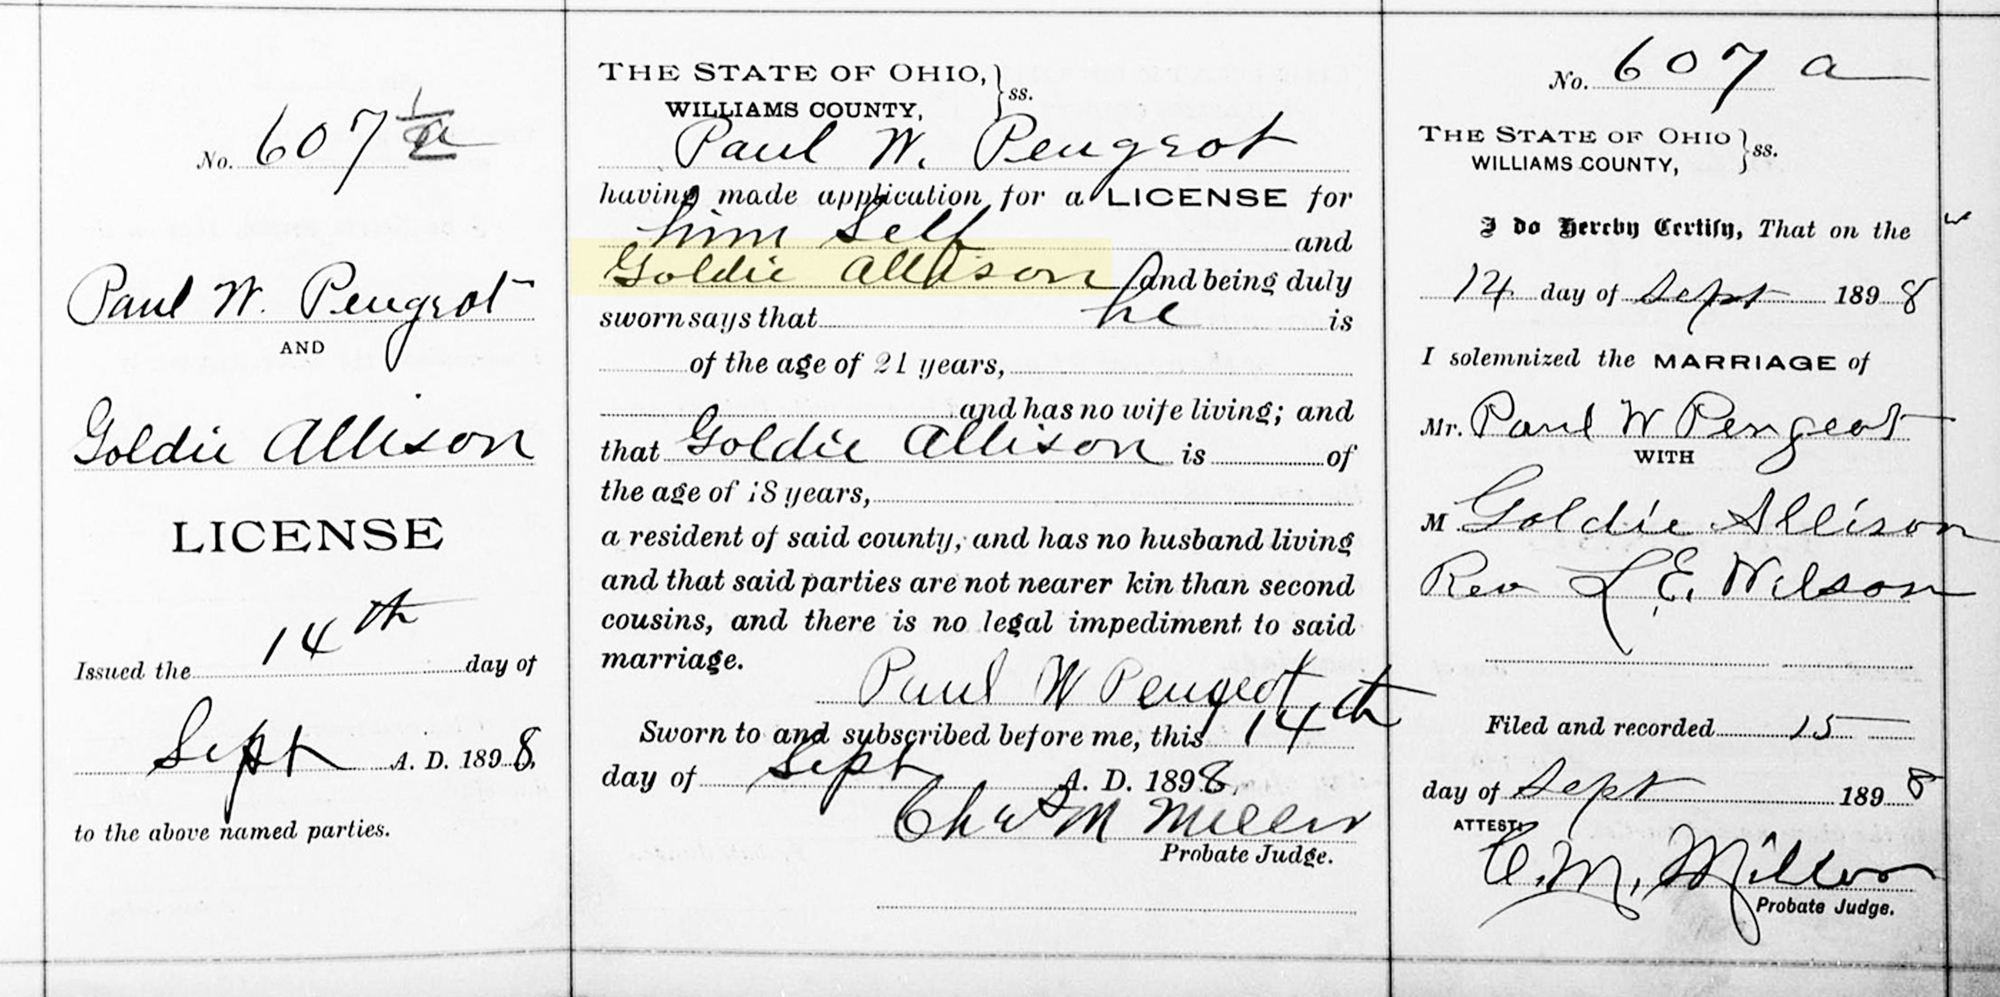 No. 607 ½ a
Paul W. Peugeot
AND
Goldie Allison
LICENSE
Issued the 14th day of
Sept A. D. 1898,
to the above named parties.
THE STATE OF OHIO, } ss.
WILLIAMS COUNTY,
Paul W. Peugeot
having made application for a LICENSE for
him self and
Goldie Allison And being duly
sworn says that he is
of the age of 21 years,
and has no wife living; and
that Goldie Allison is of
the age of 18 years,
a resident of said county, and has no husband living
and that said parties are not nearer kin than second
cousins, and there is no legal impediment to said
marriage.
Paul W Peugeot
Sworn to and subscribed before me, this 14th
day of Sept A. D. 1898,
Chas M Miller
Probate Judge.
No. 607 a
THE STATE OF OHIO } ss.
WILLIAMS COUNTY,
I do Hereby Certify, That on the
14 day of Sept 1898
I solemnized the MARRIAGE of
Mr. Paul W Peugeot
WITH
M Goldie Allison
Rev L. E. Wilson
Filed and recorded 15
day of Sept 1898
ATTEST:
C. M. Miller
Probate Judge.